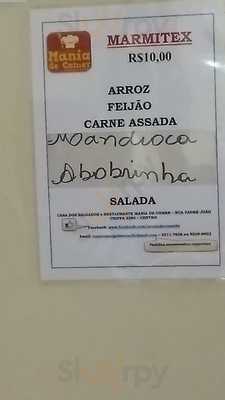 Mania
de Comer
MARMITEX
R$10,00
ARROZ
FEIJÃO
CARNE ASSADA
Mandioca
Abobrinha
SALADA
CASA DOS SALGADOS e RESTAURANTE MANIA DE COMER - RUA PADRE JOÃO
CENTRO
Facebook:
Email: